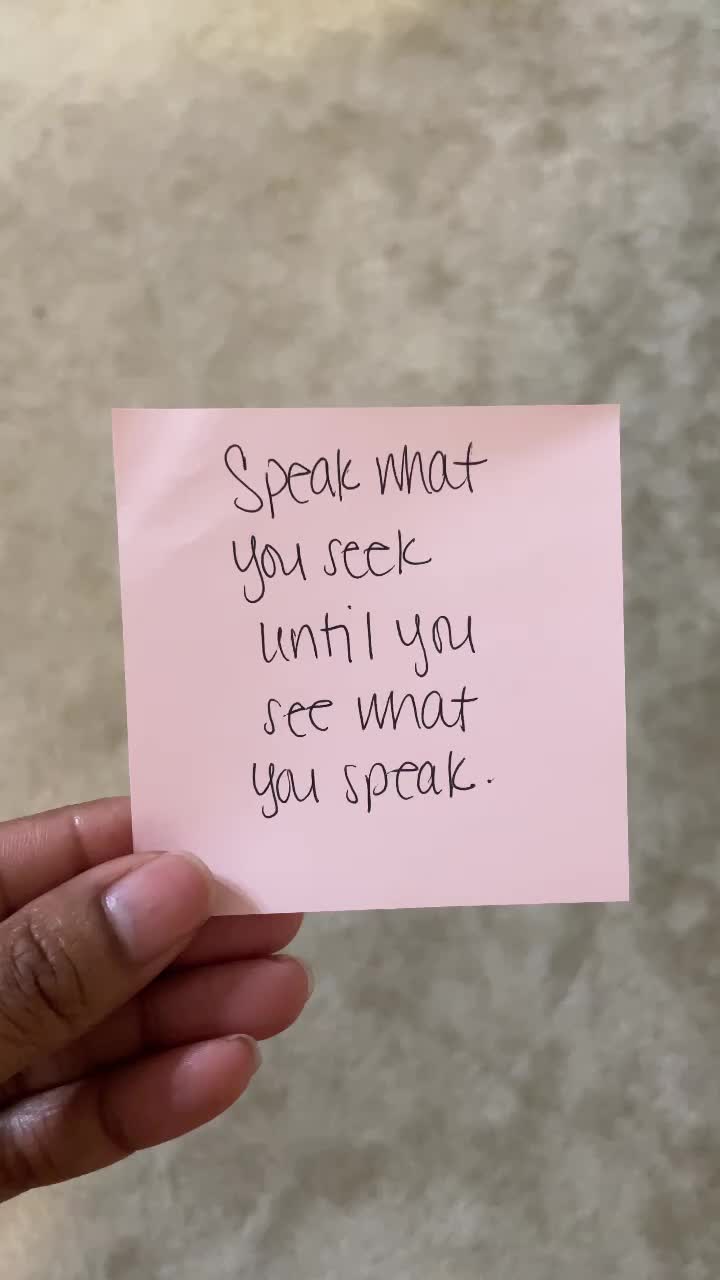 Speak what
you seek
until you
see what
you speak.